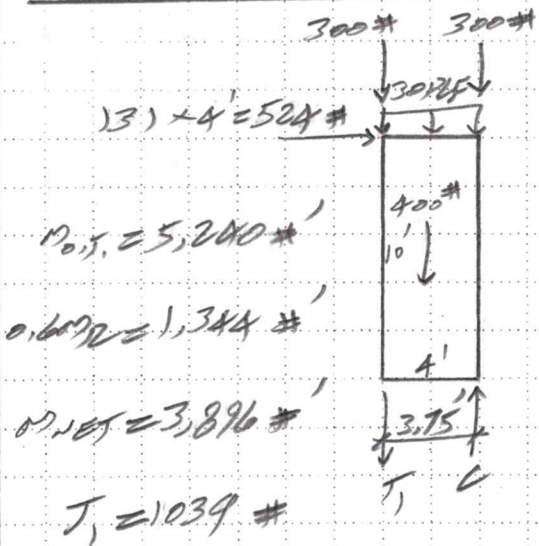 300# 300#
30PLF
131 × 4' = 524 #
400#
M₀.T. = 5,240 #'
10'
0.6MR = 1,344 #'
4'
MNET = 3,896 #'
3.75'
T₁ C
T₁ = 1039 #